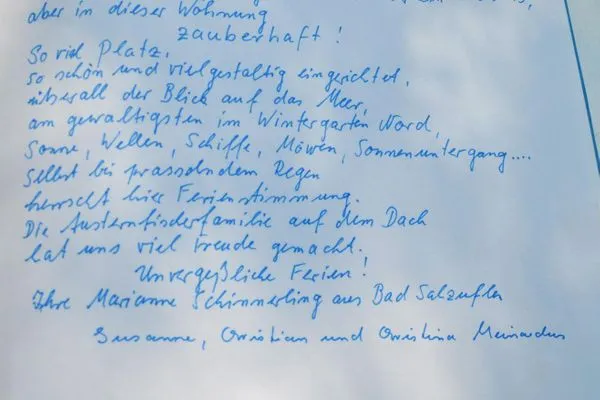 aber in dieser Wohnung
zauberhaft!
So viel Platz,
so schön und vielgestaltig eingerichtet,
überall der Blick auf das Meer,
am gewaltigsten im Wintergarten Nord,
Sonne, Wellen, Schiffe, Möwen, Sonnenuntergang....
Selbst bei prasselndem Regen
herrscht hier Ferienstimmung.
Die Austernfischerfamilie auf dem Dach
hat uns viel Freude gemacht.
Unvergeßliche Ferien!
Ihre Marianne Schimmerling aus Bad Salzuflen
Susanne, Christian und Christina Meinardus